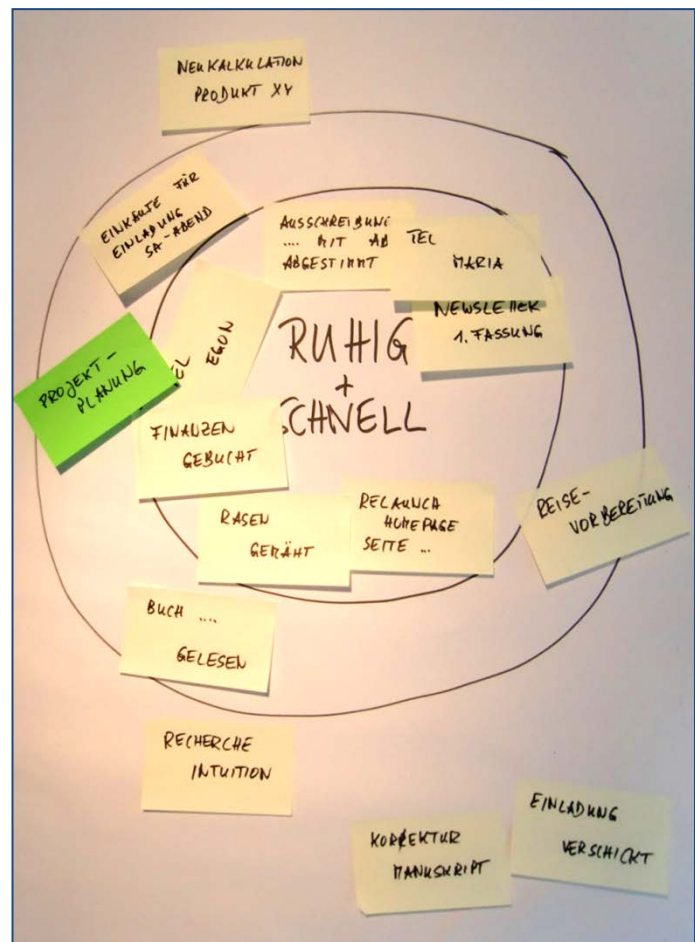 NEUKALKULATION
PRODUKT XY
EINKÄUFE FÜR
EINLADUNG
SA-ABEND
AUSSCHREIBUNG
.... MIT AB
ABGESTIMMT
TEL
MARIA
NEWSLETTER
1. FASSUNG
EL EGON
RUHIG
+
SCHNELL
PROJEKT-
PLANUNG
FINANZEN
GEBUCHT
RASEN
GEMÄHT
RELAUNCH
HOMEPAGE
SEITE ...
REISE-
VORBEREITUNG
BUCH ....
GELESEN
RECHERCHE
INTUITION
EINLADUNG
VERSCHICKT
KORREKTUR
MANUSKRIPT